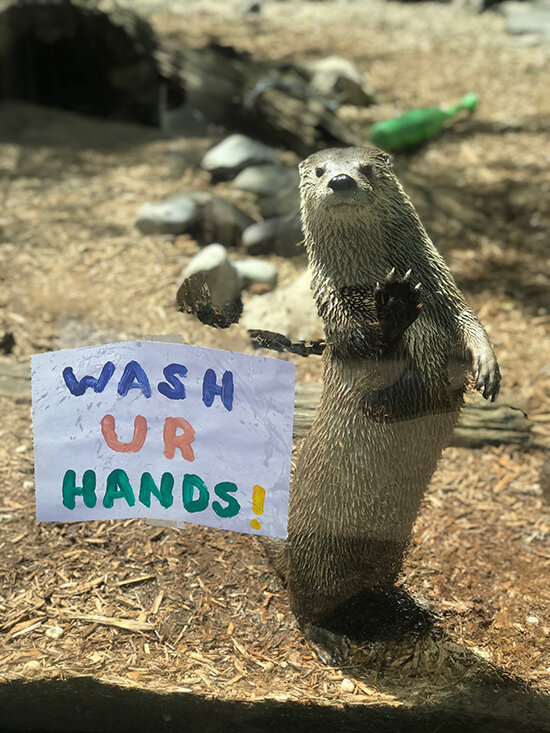 WASH
UR
HANDS!